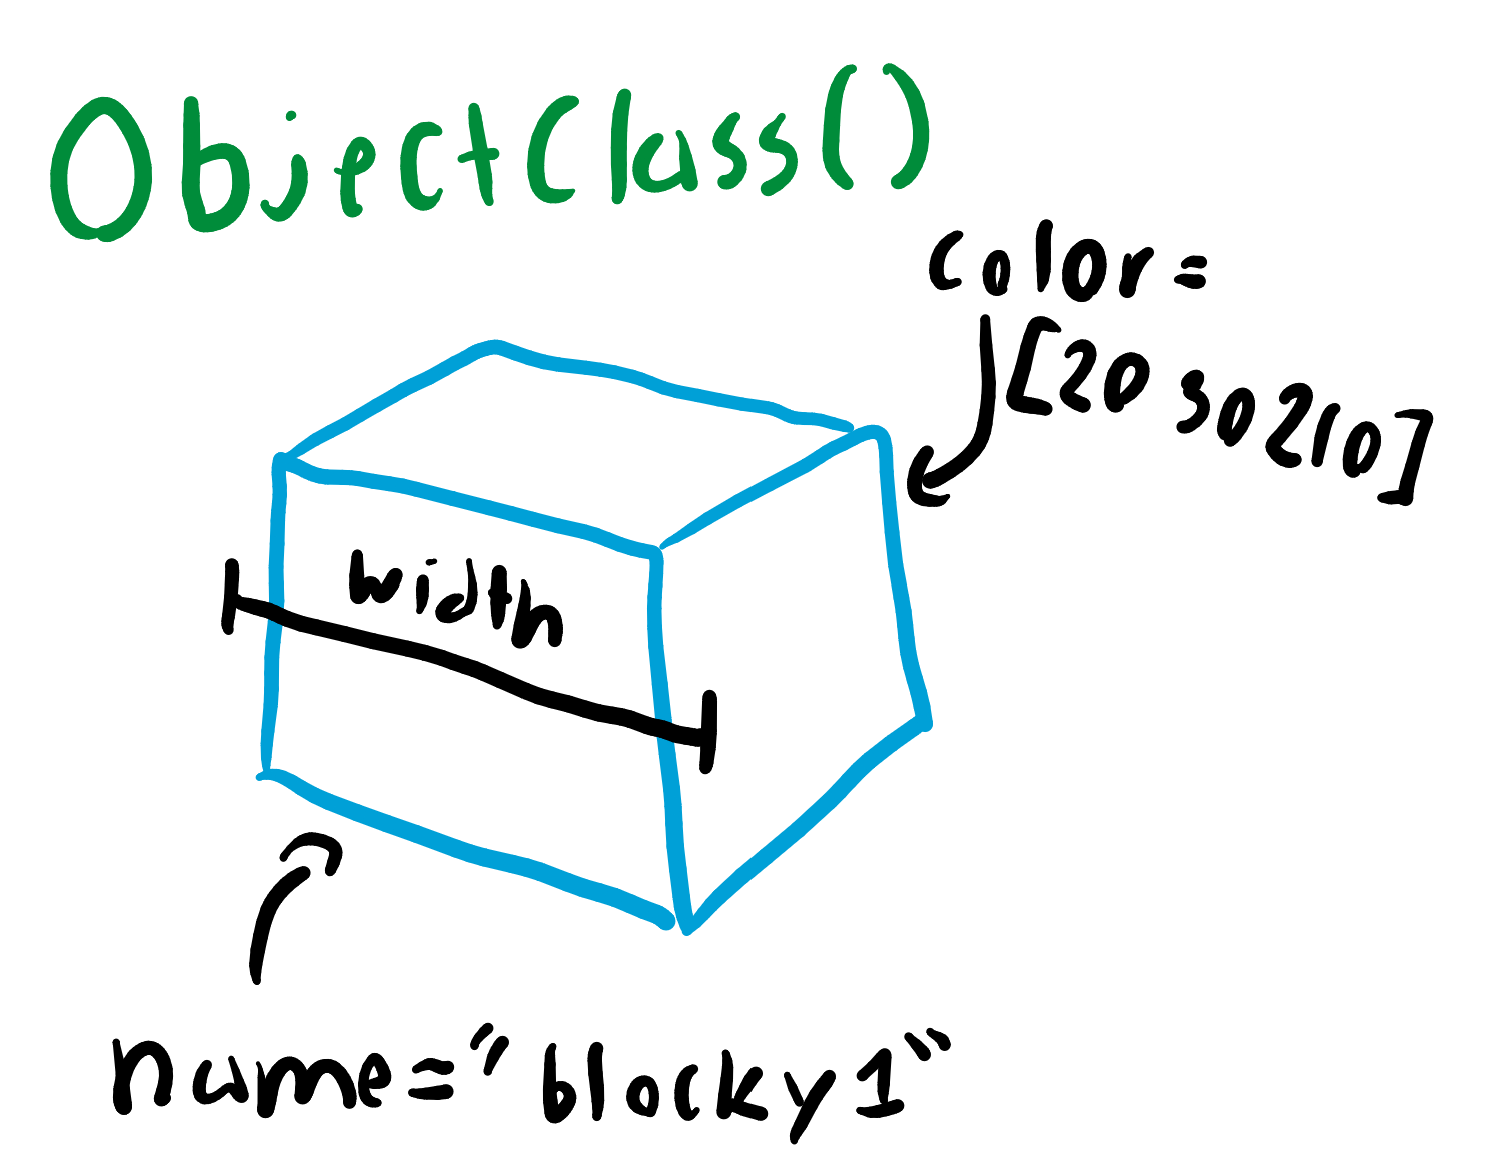 ObjectClass()
color=
[20 30 210]
width
name="blocky1"